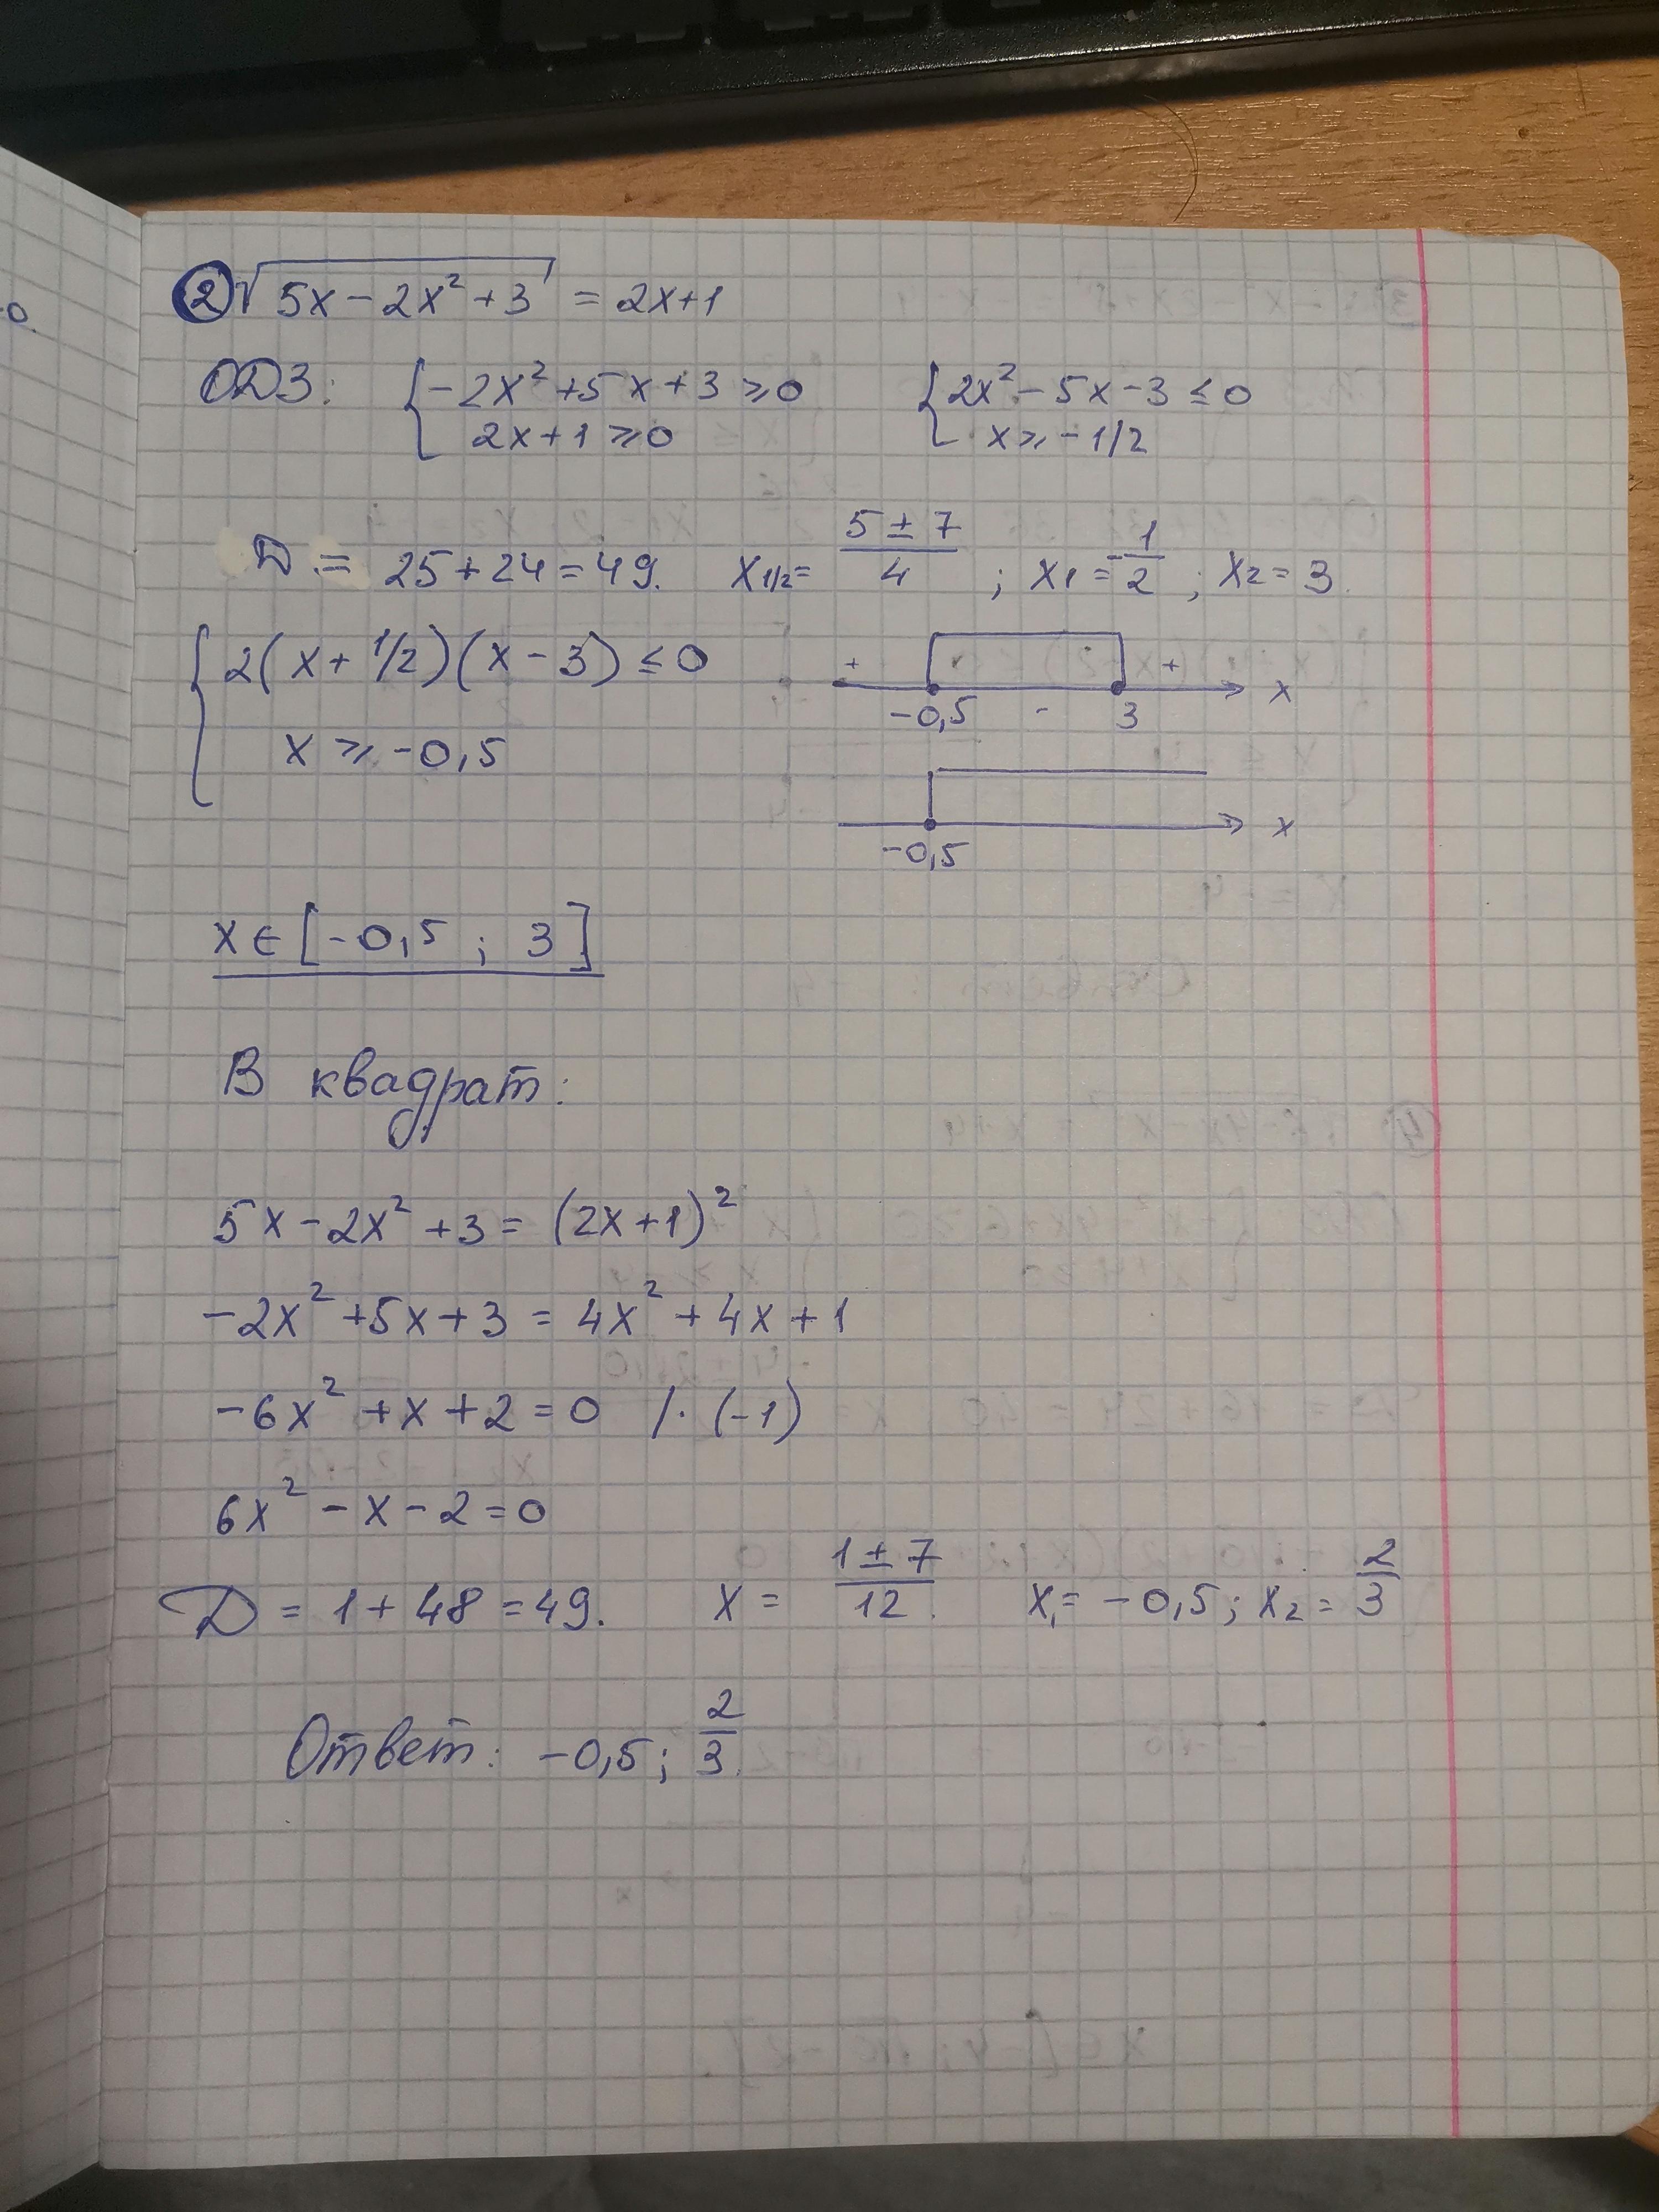 ② √(5x - 2x² + 3) = 2x+1
ОДЗ: { -2x² + 5x + 3 ≥ 0 { 2x² - 5x - 3 ≤ 0
2x + 1 ≥ 0 x ≥ -1/2
D = 25 + 24 = 49. x1/2 = (5 ± 7)/4 ; x1 = -1/2 ; x2 = 3
{ 2(x + 1/2)(x - 3) ≤ 0 + +
x
-0,5 - 3
x ≥ -0,5
x
-0,5
x ∈ [-0,5 ; 3]
В квадрат:
5x - 2x² + 3 = (2x+1)²
-2x² + 5x + 3 = 4x² + 4x + 1
-6x² + x + 2 = 0 /· (-1)
6x² - x - 2 = 0
D = 1 + 48 = 49. x = (1 ± 7)/12. x₁ = -0,5; x₂ = 2/3
Ответ: -0,5; 2/3.